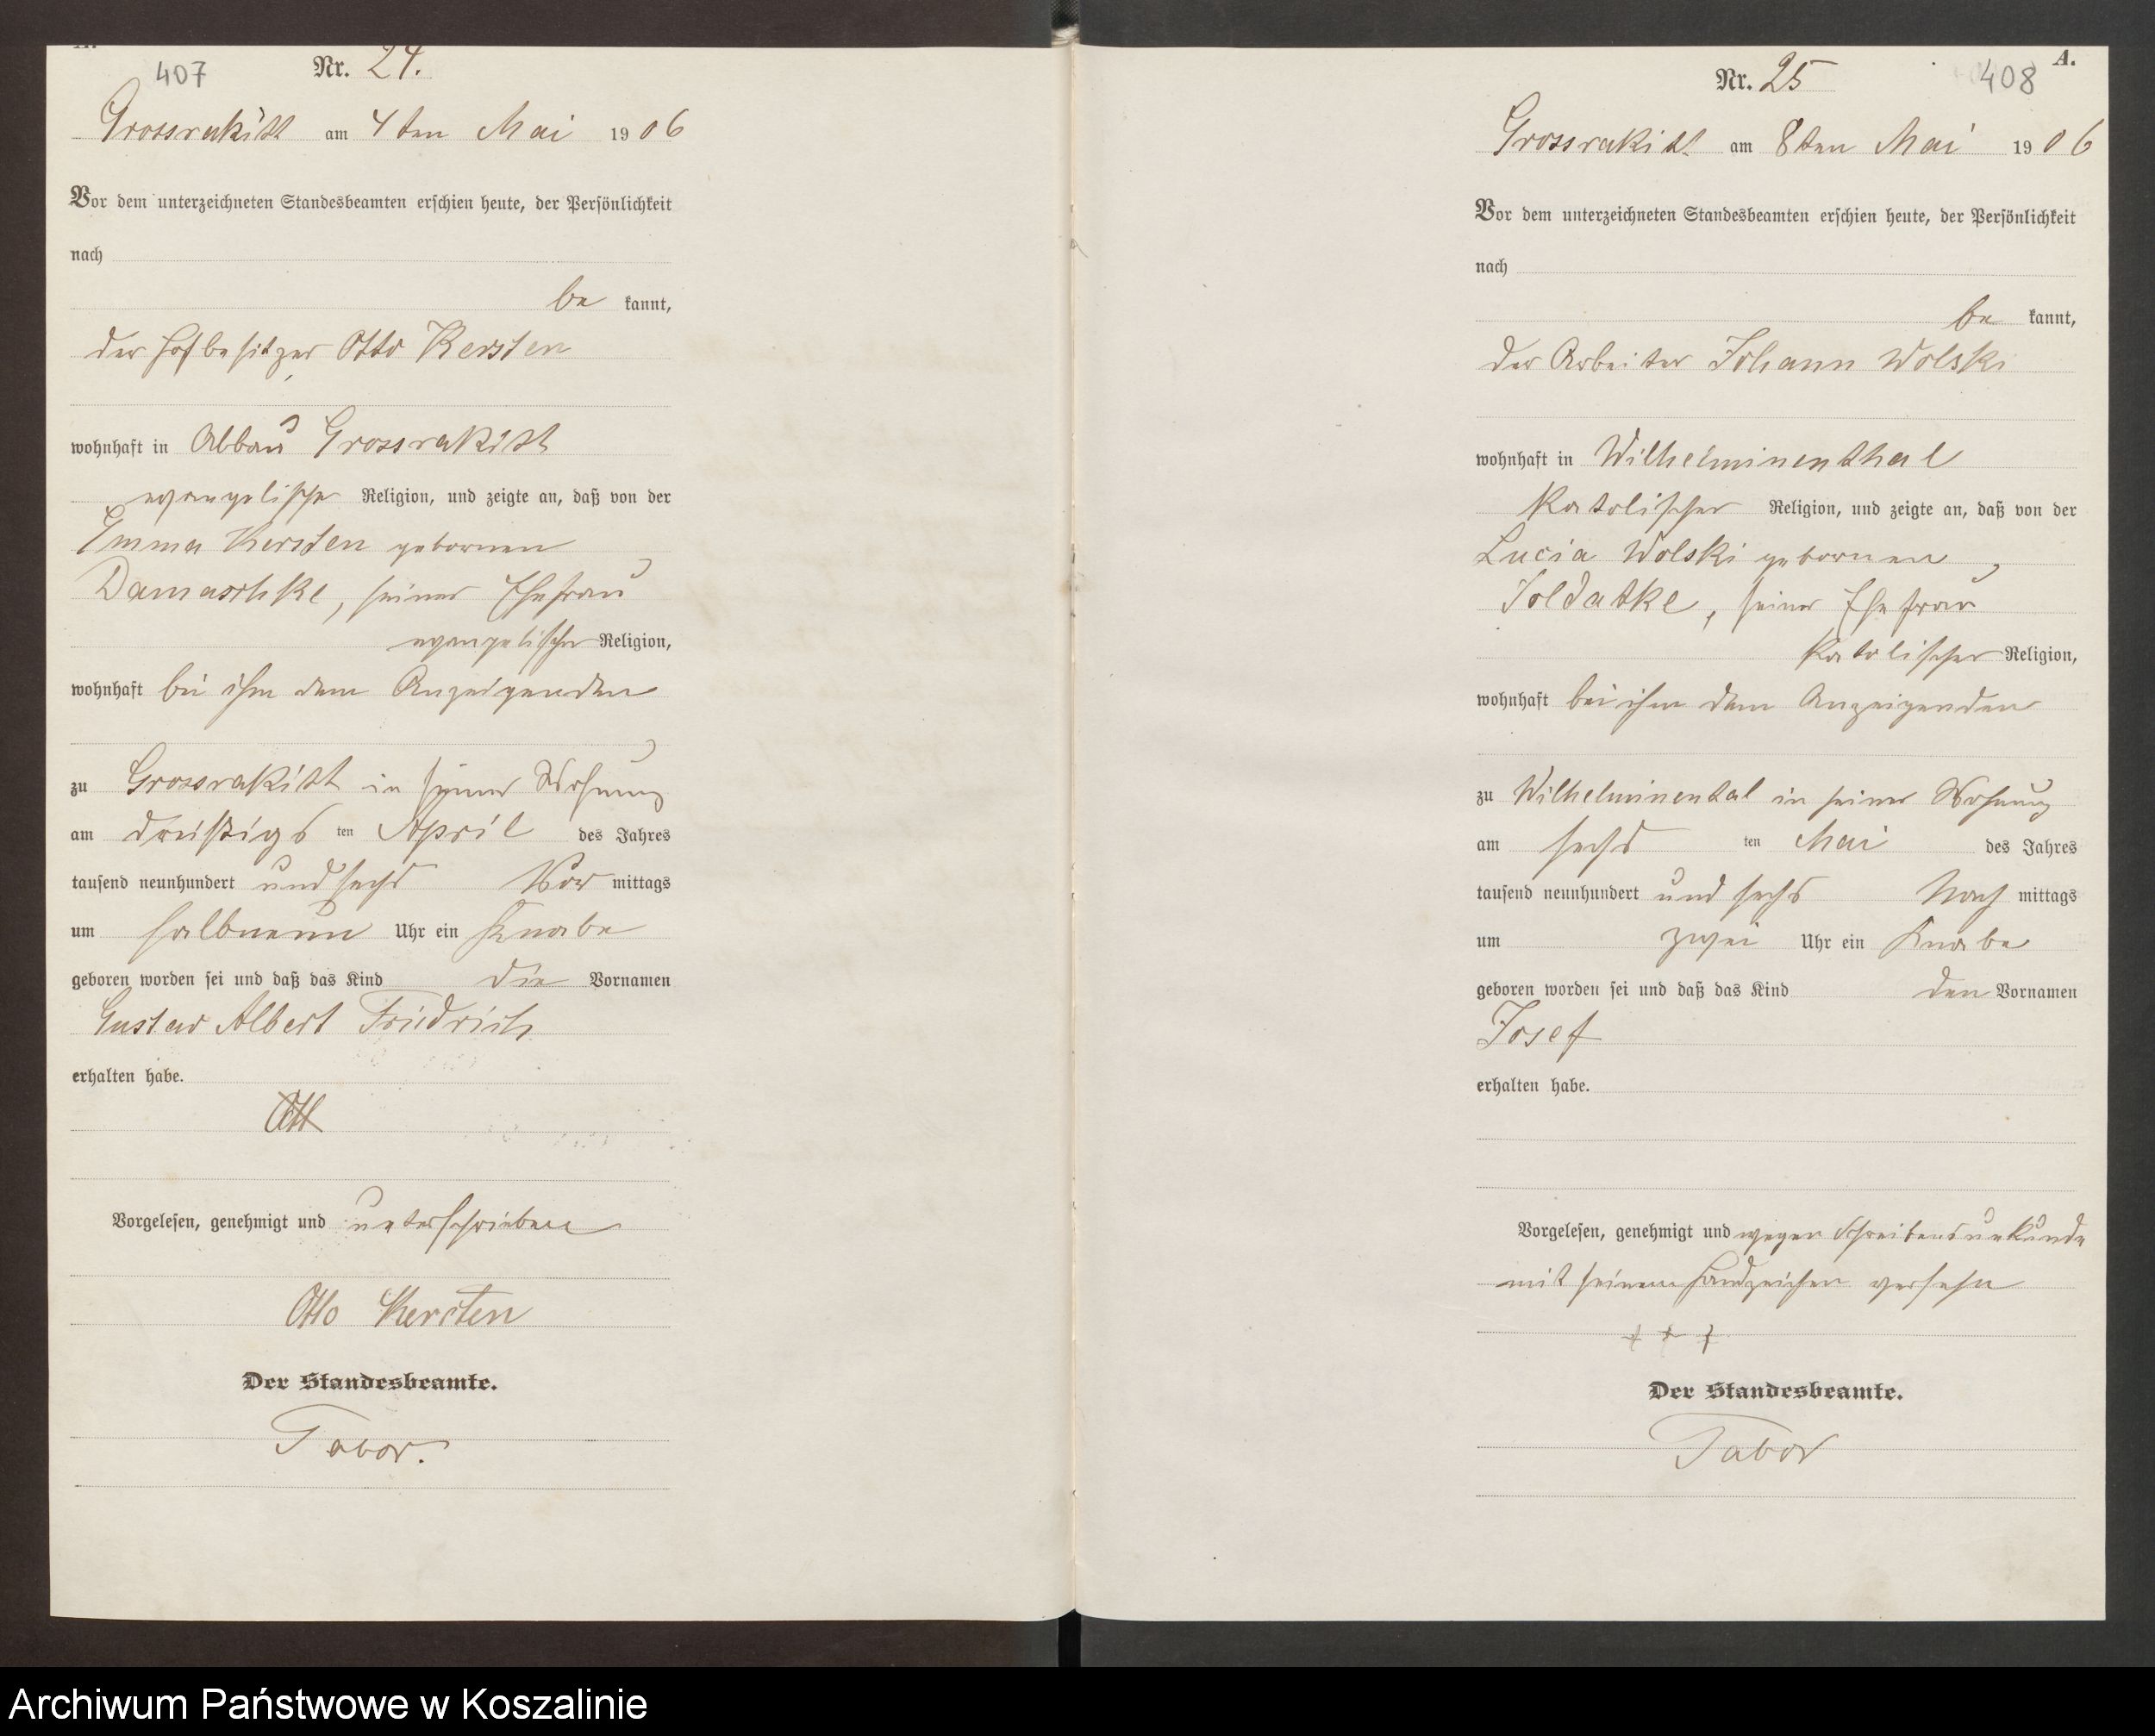 A.
407
Nr. 24.
Grossrakitt am 4ten Mai 1906
Vor dem unterzeichneten Standesbeamten erschien heute, der Persönlichkeit
nach
be kannt,
der Hofbesitzer Otto Kersten
wohnhaft in Abbau Grossrakitt
evangelischer Religion, und zeigte an, daß von der
Emma Kersten gebornen
Damaschke, seiner Ehefrau
evangelischer Religion,
wohnhaft bei ihm dem Anzeigenden
zu Grossrakitt in seiner Wohnung
am dreißigs ten April des Jahres
tausend neunhundert und sechs Vor mittags
um halbneun Uhr ein Knabe
geboren worden sei und daß das Kind die Vornamen
Gustav Albert Friedrich
erhalten habe.
Ott
Vorgelesen, genehmigt und unterschrieben
Otto Kersten
Der Standesbeamte.
Tabor.
A.
408
Nr. 25
Grossrakitt am 8ten Mai 1906
Vor dem unterzeichneten Standesbeamten erschien heute, der Persönlichkeit
nach
be kannt,
der Arbeiter Johann Wolski
wohnhaft in Wilhelminenthal
Katolischer Religion, und zeigte an, daß von der
Lucia Wolski gebornen
Soldatke, seiner Ehefrau
Katolischer Religion,
wohnhaft bei ihm dem Anzeigenden
zu Wilhelminental in seiner Wohnung
am sechs ten Mai des Jahres
tausend neunhundert und sechs Nach mittags
um zwei Uhr ein Knabe
geboren worden sei und daß das Kind den Vornamen
Josef
erhalten habe.
Vorgelesen, genehmigt und wegen Schreibensunkunde
mit seinem Handzeichen versehn
+ + +
Der Standesbeamte.
Tabor
Archiwum Państwowe w Koszalinie